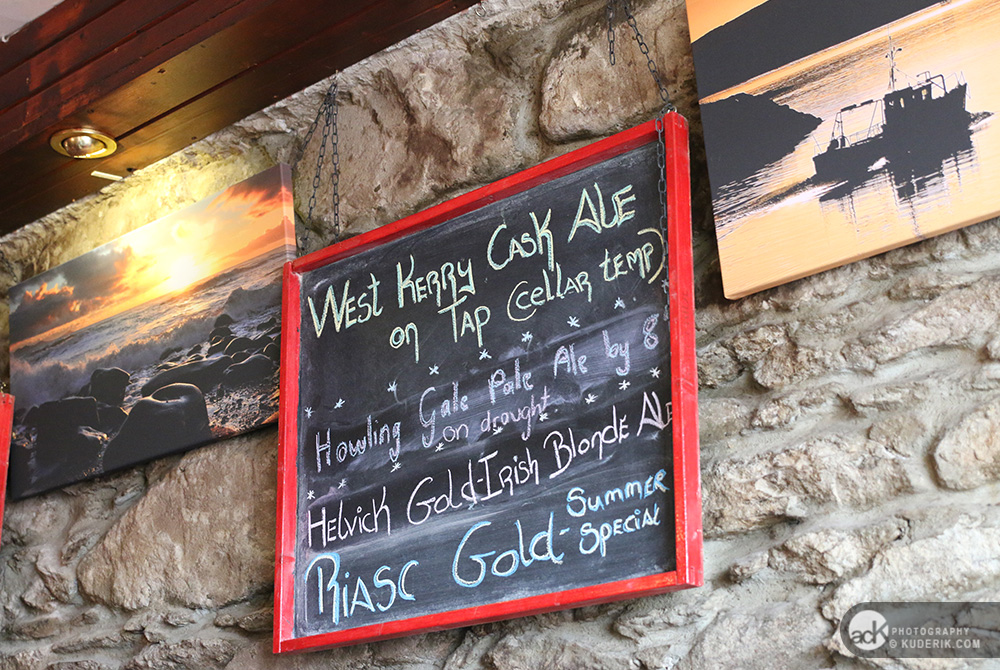 West Kerry Cask Ale
on Tap (cellar temp)
Howling Gale Pale Ale by 8
on draught
Helvick Gold-Irish Blonde Ale
Riasc Gold-Summer
Special
adK PHOTOGRAPHY
© KUDERIK.COM